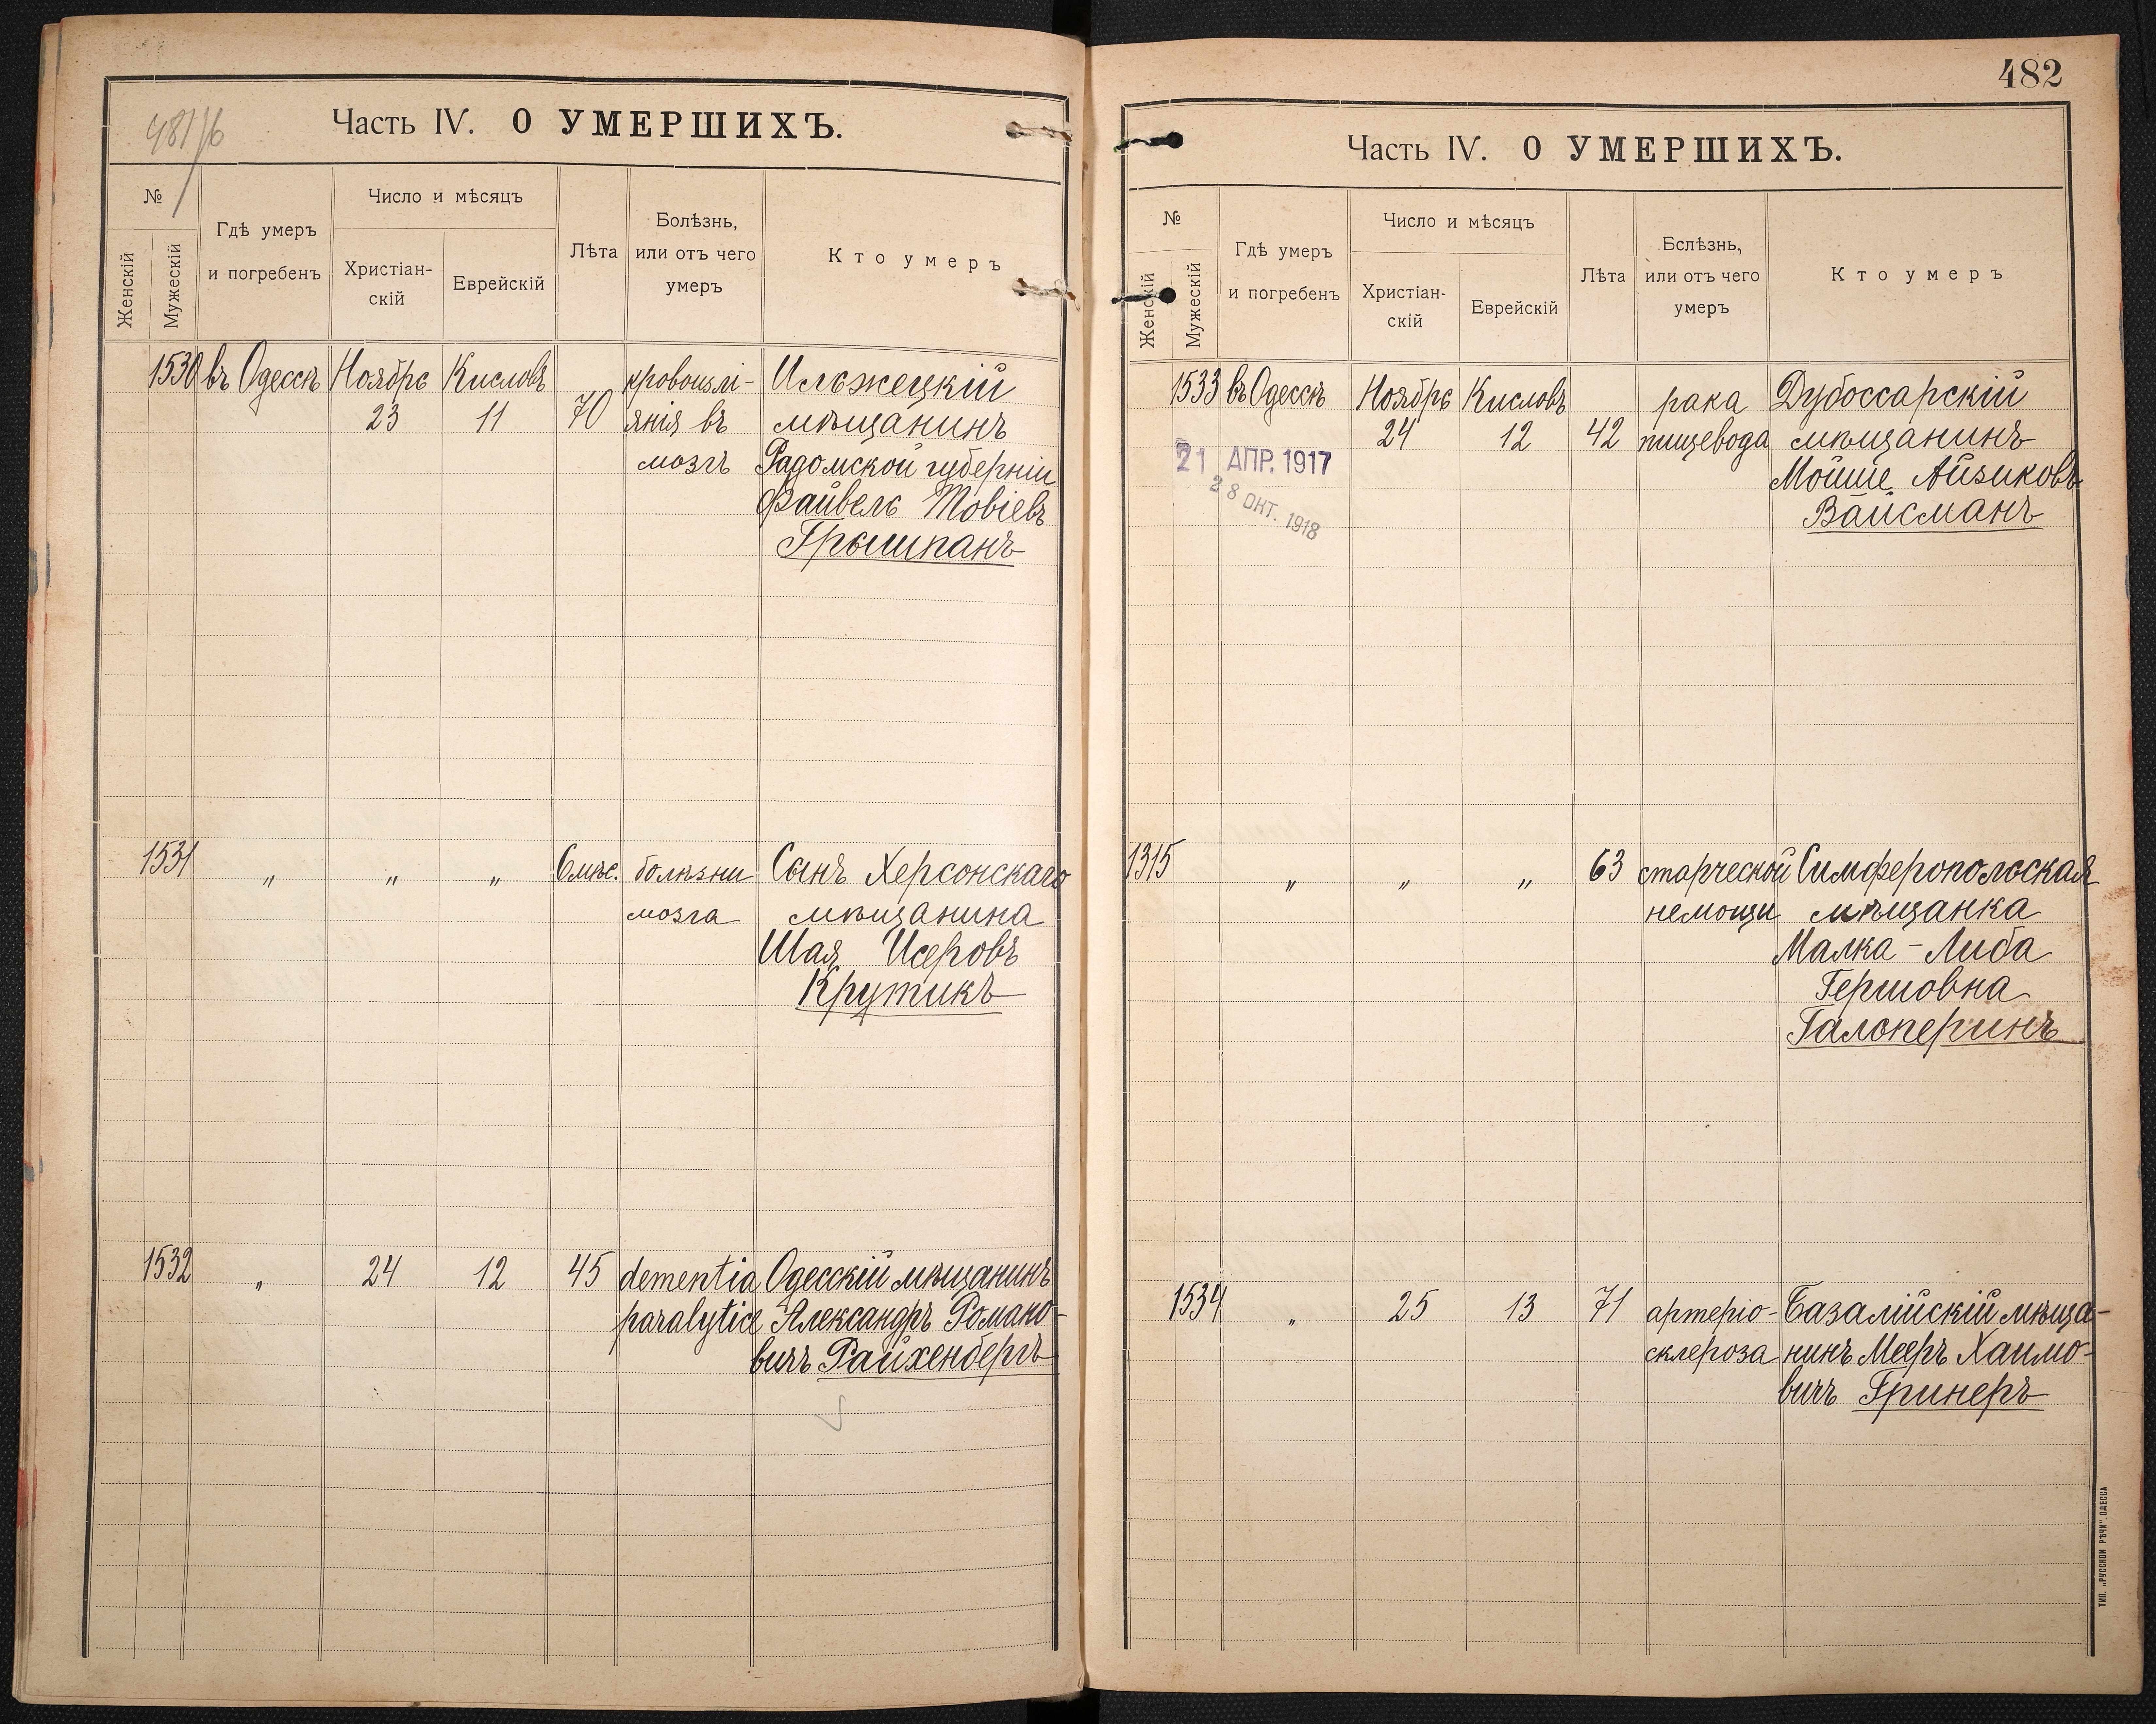 481/6
Часть IV. О УМЕРШИХЪ.
№
Женскій
Мужескій
Гдѣ умеръ
и погребенъ
Число и мѣсяцъ
Христіан-
скій
Еврейскій
Лѣта
Болѣзнь,
или отъ чего
умеръ
Кто умеръ
1530 въ Одессѣ Ноябрь Кисловъ кровоизлі- Ильжецкій
23 11 70 янія въ мѣщанинъ
мозгъ Радомской губерніи
Файвель Товіевъ
Грышпанъ
1531 " " " 6 мѣс. болѣзни Сынъ Херсонскаго
мозга мѣщанина
Шая Исеровъ
Крутикъ
1532 " 24 12 45 dementia Одесскій мѣщанинъ
paralytica Александръ Романо-
вичъ Райхенбергъ
482
Часть IV. О УМЕРШИХЪ.
№
Женскій
Мужескій
Гдѣ умеръ
и погребенъ
Число и мѣсяцъ
Христіан-
скій
Еврейскій
Лѣта
Бслѣзнь,
или отъ чего
умеръ
Кто умеръ
1533 въ Одессѣ Ноябрь Кисловъ рака Дубоссарскій
24 12 42 пищевода мѣщанинъ
21 АПР. 1917 Мойше Айзиковъ
28 ОКТ. 1918 Вайсманъ
1315 " " " 63 старческой Симферопольская
немощи мѣщанка
Малка-Либа
Гершовна
Гальперинъ
1534 " 25 13 71 артеріо- Базалійскій мѣща-
склероза нинъ Мееръ Хаимо-
вичъ Гринеръ
ТИП. „РУССКОЙ РѢЧИ" ОДЕССА